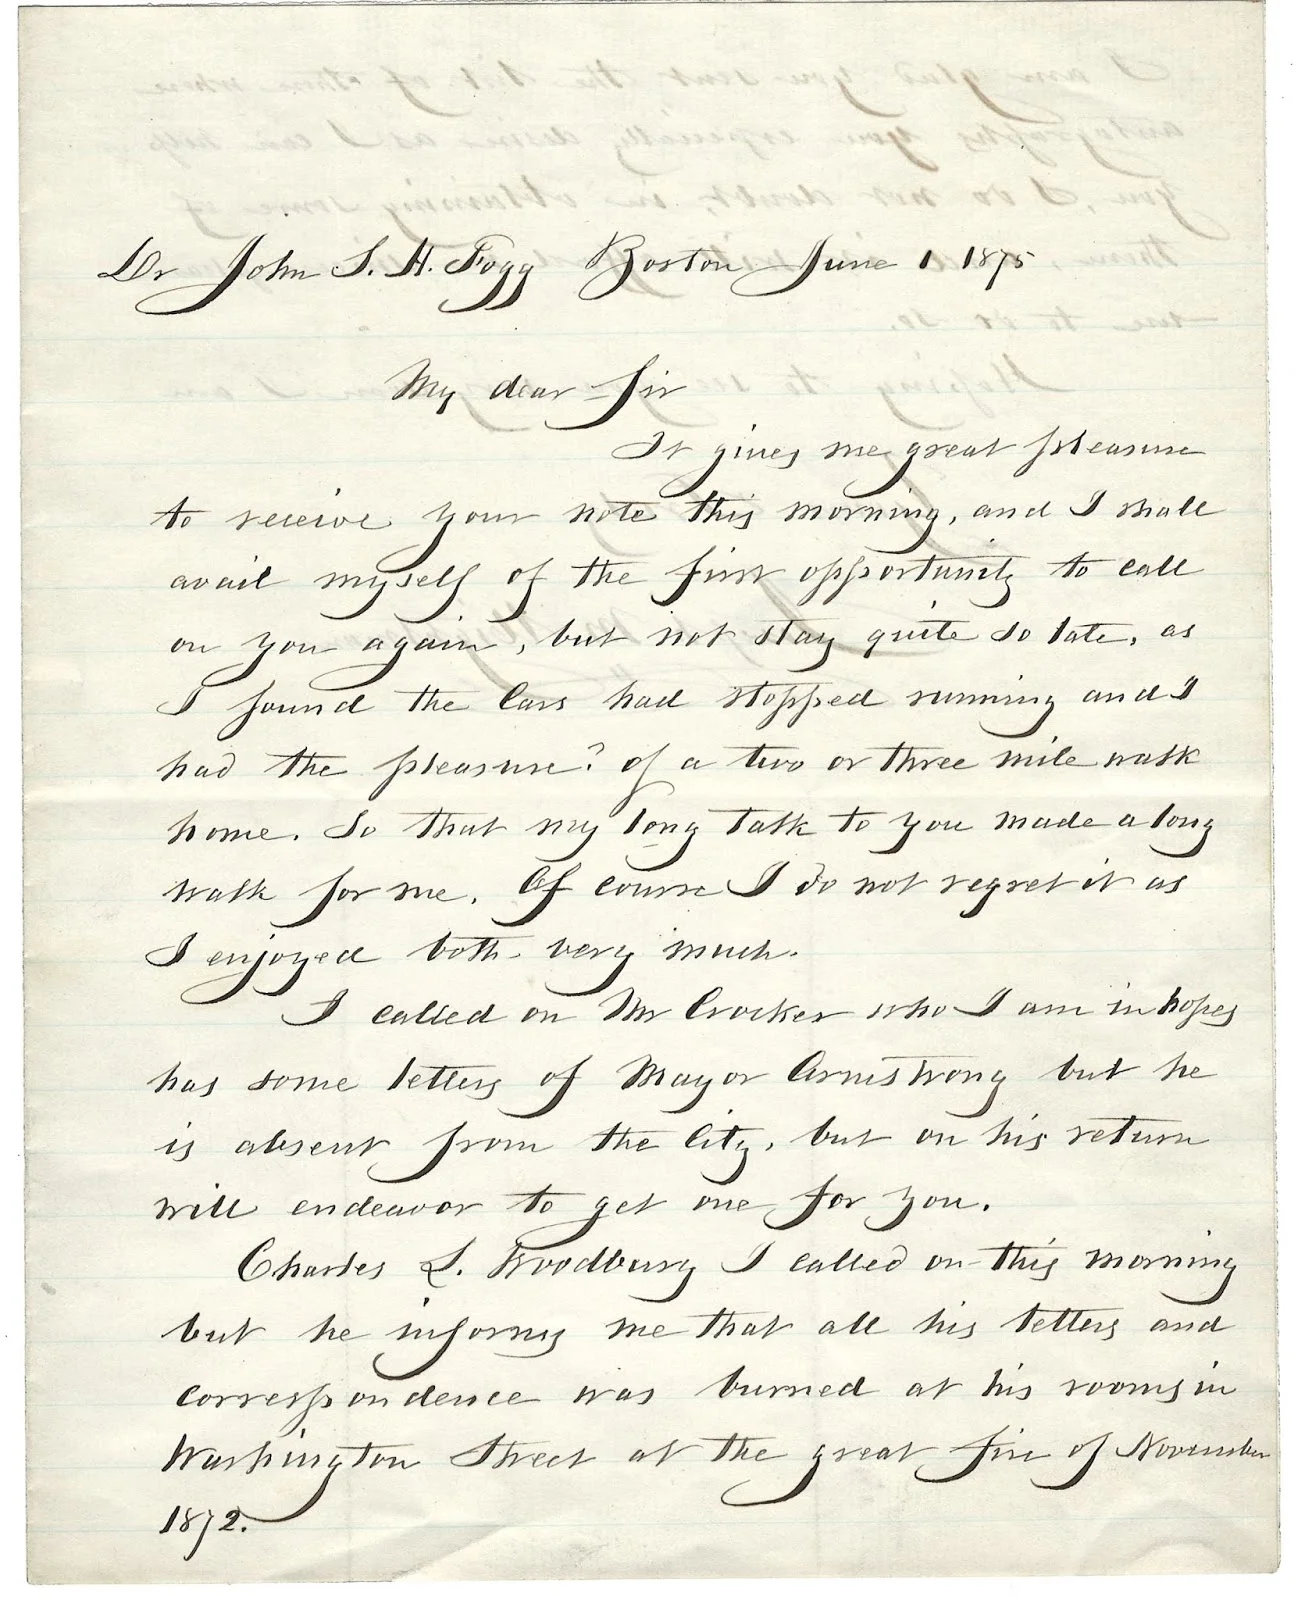 Dr John S. H. Fogg Boston June 1 1875
My dear Sir
It gives me great pleasure
to receive your note this morning, and I shall
avail myself of the first opportunity to call
on you again, but not stay quite so late, as
I found the Cars had stopped running and I
had the pleasure? of a two or three mile walk
home. So that my long talk to you made a long
walk for me. Of course I do not regret it as
I enjoyed both very much.
I called on Mr Crocker who I am in hopes
has some letters of Mayor Armstrong but he
is absent from the City, but on his return
will endeavor to get one for you.
Charles L. Woodbury I called on this morning
but he informs me that all his letters and
correspondence was burned at his rooms in
Washington Street at the great fire of November
1872.